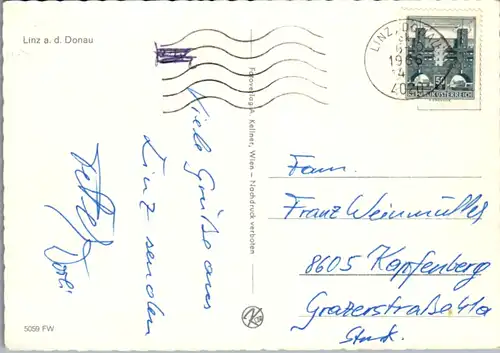 Linz a. d. Donau
Viele Grüße aus
Linz senden
Fotoverlag A. Kellner, Wien – Nachdruck verboten
LINZ, DO
1966
4020
50
REPUBLIK ÖSTERREICH
Fam.
Franz Weinmüller
8605 Kapfenberg
Grazerstraße 41a
Stmk.
5059 FW